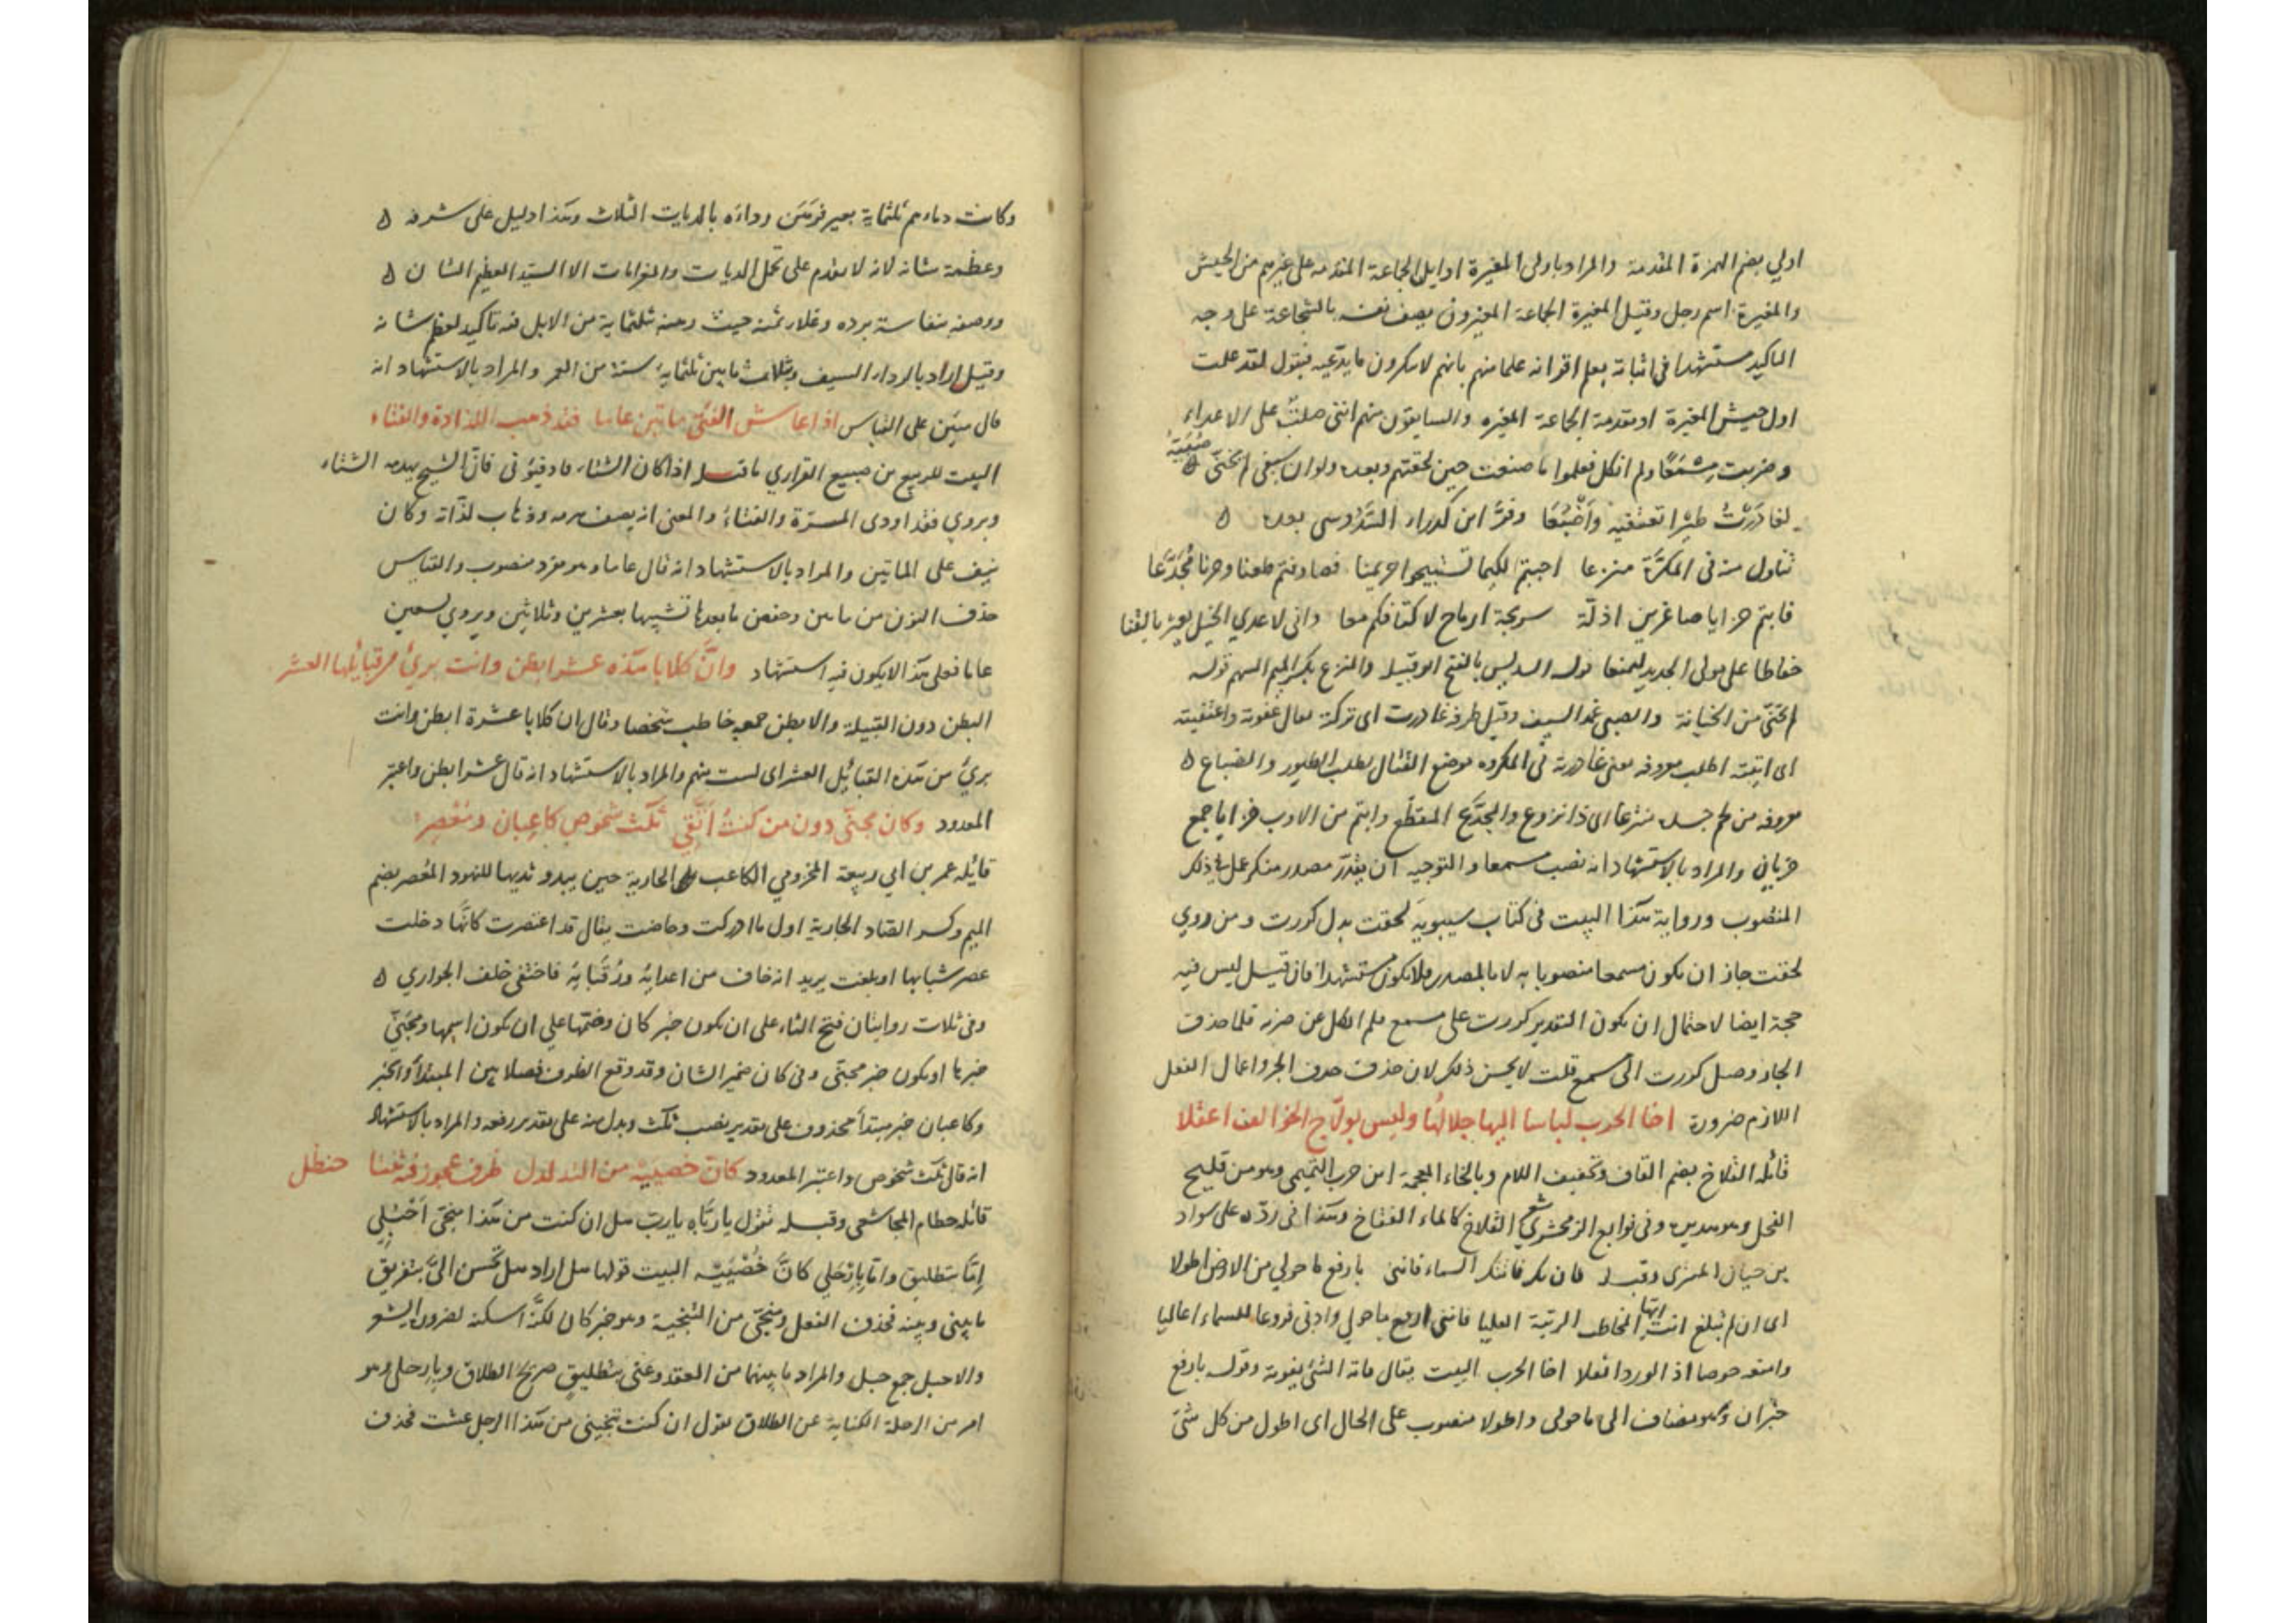 اولي بضم الهمزة المقدمة والمراد باولى المغيرة اوايل الجماعة المتقدمه على غيرهم من الجيش
والمغيرة اسم رجل وقيل المغيرة الجماعة المغيرون يصف نفسه بالشجاعة على وجه
التاكيد مستشهدا فى اثباته بعلم اقرانه علما منهم بانهم لا ينكرون ما يدعيه فيقول لقد علمت
اول جيش المغيرة او مقدمة الجماعة المغيره والسابقون منهم اننى صلت على الاعداء
وضربت مِسْمَعًا ولم انكل فعلموا ما صنعت حين لحقتهم وبعده ولو ان سيفى لم تخنّى ضبيته
لغادَرْتُ طيْرا تعتفيه وَاَضْبُعًا وفرَّ ابن كدراء السَّدوسى بعده
تناول منه فى المكَرَّة منزعا اجبتم اليكيما تستبيحوا حريمنا فصادفتم طعنا وضربا مُجَدَّعا
فابتم خزايا صاغرين اذلّة سريجة ارماح لاكتافكم معا وانى لاعدي الخيل تعثر بالقنا
حفاظا على مولى الحريد ليمنعا قوله السدوس بالفتح ابو قبيلة والمنزع بكسر الميم السهم قوله
لم تخنّى من الخيانة والضبى غمد السيف وقيل طرفه غادرت اى تركة يقال عفوته واعتفيته
اى اتيته اطلب معروفه يعنى غادرته فى المكروه موضع القتال يطلب الطيور والضباع
معروفه من لحم جسده منزعا اى ذا نزوع والمجدَّع المقطّع وابتم من الاوب خزايا جمع
خزيان والمراد بالاستشهاد انه نصب مسمعا والتوجيه ان يقدّر مصدر منكر عمل فى ذلك
المنصوب ورواية هكذا البيت فى كتاب سيبويه لحقت بدل كررت ومن روي
لحقت جاز ان يكون مسمعا منصوبا به لا بالمصدر فلا يكون مستشهدا فان قيل ليس فيه
حجة ايضا لاحتمال ان يكون التقدير كررت على مسمع فلم انكل عن ضربه فلما حذف
الجار وصل كررت الى مسمع قلت لا يحسن ذلك لان حذف حرف الجر واعمال الفعل
اللازم ضرورة اخا الحرب لباسا اليها جلالُها وليس بولّاج الخوالف اعقلا
قائله القلاخ بضم القاف وتخفيف اللام وبالخاء المعجمة ابن حرب التميمى وهو من قليخ
الفحل وهو هديره وفى نوابع الزمخشري شعر القلاخ كالماء النقاخ وهكذا فى ردّه على سواد
بن حيان المنقرى وقبله فان تك فاتتك السماء فاننى بارفع ما حولي من الارض اطولا
اى ان لم تبلغ انت ايها المخاطب الرتبة العليا فاننى ارفع ما حولي وادنى فروعا للسماء اعاليا
اخا الحرب البيت يقال فاته الشئ يفوته وقوله بارفع
خبران وهو مضاف الى ما حولى واطولا منصوب على الحال اى اطول من كل شئ
وكانت دماءهم ثلثماية بعير فرهَن رداءه بالديات الثلاث وهكذا دليل على شرفه
وعظمة شانه لانه لا يقدم على تحمل الديات والغرامات الا السيّد العظيم الشان
ووصفه بنفاسة برده وغلاء ثمنه حيث رهنه بثلثماية من الابل فيه تاكيد لعظم شانه
وقيل اراد بالرداء السيف وبثلاث مايين ثلثماية سنة من العمر والمراد بالاستشهاد انه
قال مئين على القياس اذا عاش الفتى مائتين عاما فقد ذهب اللذاذة والفتاء
البيت للربيع بن ضبيع الفزاري ما قبله اذا كان الشتاء فادفئونى فانّ الشيخ يهدمه الشتاء
ويروي فقد اودى المسرّة والفتاءُ والمعنى انه يصف هرمه وذهاب لذّاته وكان
نيف على المائتين والمراد بالاستشهاد انه قال عاما وهو مفرد منصوب والقياس
حذف النون من مائتين وخفض ما بعدها تشبيها بعشرين وثلاثين ويروي تسعين
عاما فعلى هكذا لا يكون فيه استشهاد وانَّ كلابا هذه عشر ابطن وانت برئ من قبائلها العشر
البطن دون القبيلة والابطن جمعه خاطب شخصا وقال ان كلابا عشرة ابطن وانت
برئ من هذه القبائل العشر اى لست منهم والمراد بالاستشهاد انه قال عشر ابطن واعتبر
المعدود وكان مجنّى دون من كنتُ اتّقي ثلث شخوص كاعبان ومُعْصِر
قائله عمر بن ابي ربيعة المخزومي الكاعب هى الجارية حين يبدو ثديها للنهود المُعصر بضم
الميم وكسر الصاد الجارية اول ما ادركت وحاضت يقال قد اعتصرت كانّها دخلت
عصر شبابها او بلغت يريد انه خاف من اعدائه ورُقَبائه فاختفى خلف الجواري
وفى ثلاث روايتان فتح الثاء على ان يكون خبر كان وضمّها على ان يكون اسمها ومجنّى
خبرها او يكون خبر مجنّى وفى كان ضمير الشان وقد وقع الظرف فصلا بين المبتدأ والخبر
وكاعبان خبر مبتدأ محذوف على تقدير نصب ثلث وبدل منه على تقدير رفعه والمراد بالاستشهاد
انه قال ثلث شخوص واعتبر المعدود كانّ خصييه من التدلدل ظرف عجوز فيه ثنتا حنظل
قائله خطام المجاشعى وقبله تقول يا ربّاه يا رب هل ان كنت من هكذا منجّى اَحْبُلِي
اِمّا بتطليق وامّا بارْحَلِي كانَّ خُصْيَيْه البيت قولها هل اراد هل تُحسن الىَّ بتفريق
ما بينى وبينه فحذف الفعل ومنجّى من التنجية وهو خبر كان لكنّه اسكنه لضرورة الشعر
والاحبل جمع حبل والمراد ما بينهما من العقد وعنى بتطليق صريح الطلاق وبارحلى وهو
امر من الرحلة الكناية عن الطلاق تقول ان كنت تنجينى من هكذا الرجل عشت فحذف